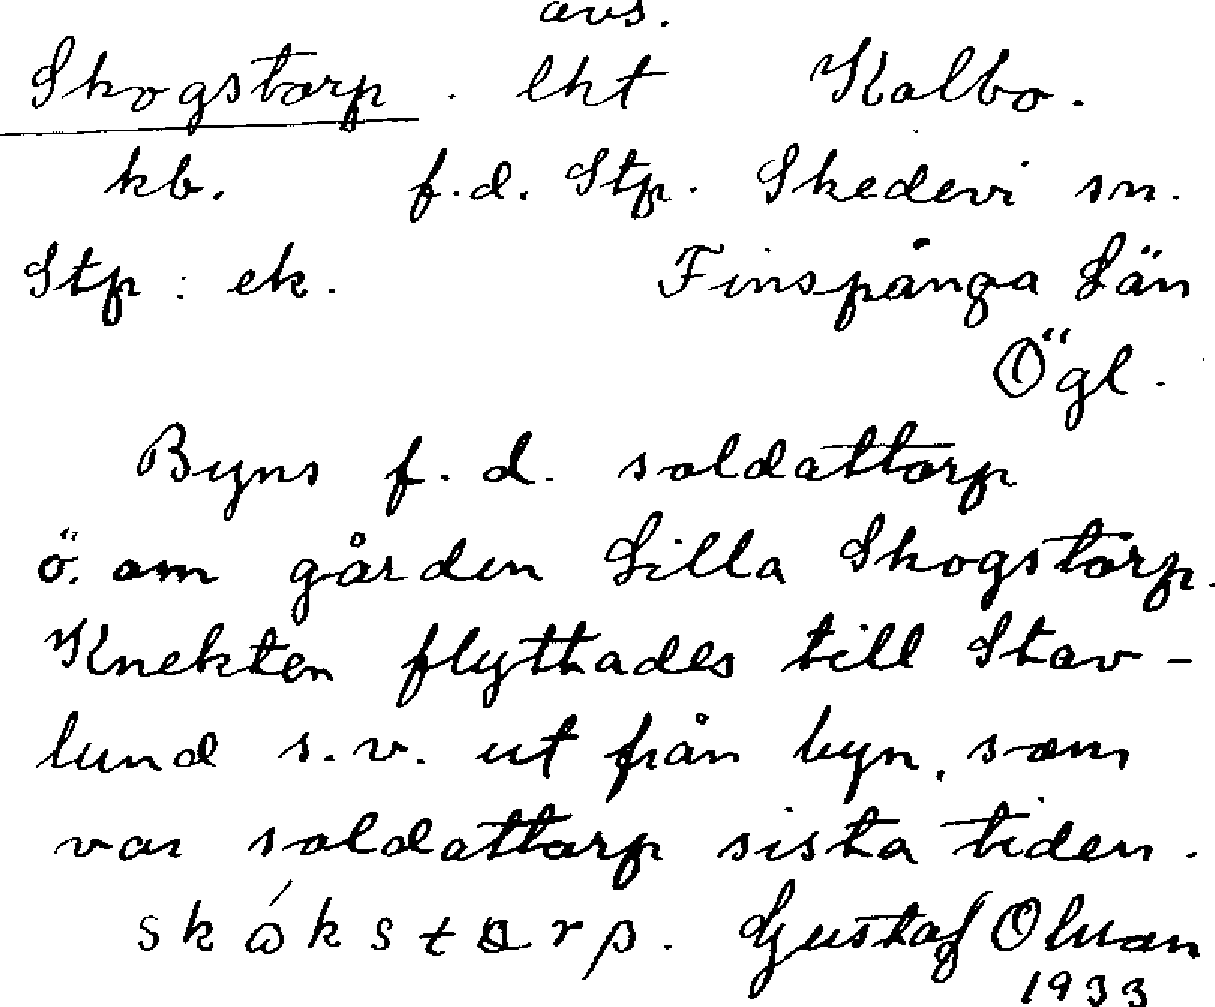 avs.
Skogstorp. lht Kalbo.
kb. f.d. Stp. Skedevi sn.
Stp: ek. Finspånga Län
Ögl.
Byns f.d. soldattorp
ö. om gården Lilla Skogstorp.
Knekten flyttades till Stav-
lund s.v. ut från byn, som
var soldattorp sista tiden.
Gustaf
1933